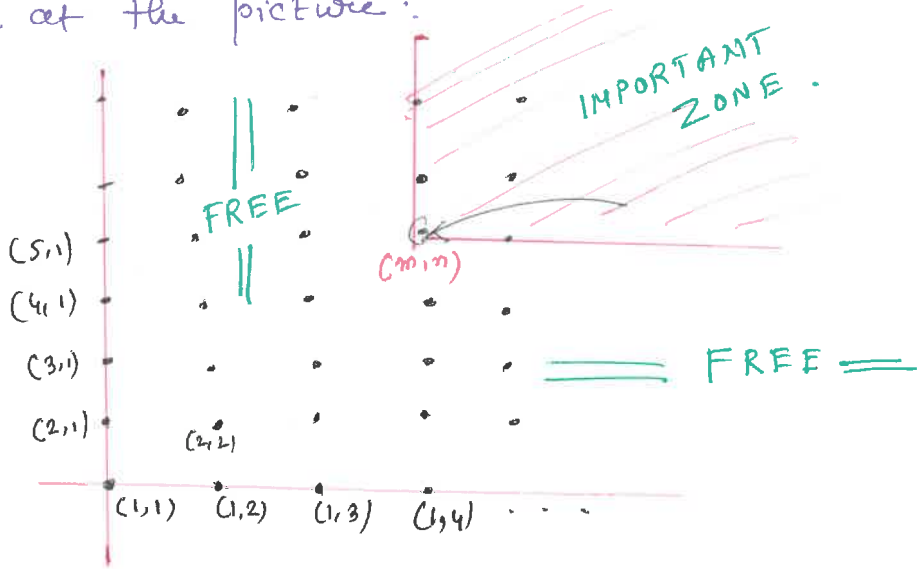 at the picture.
IMPORTANT
ZONE.
FREE
(5,1)
(m,n)
(4,1)
(3,1)
FREE
(2,1)
(2,2)
(1,1) (1,2) (1,3) (1,4) . . . .